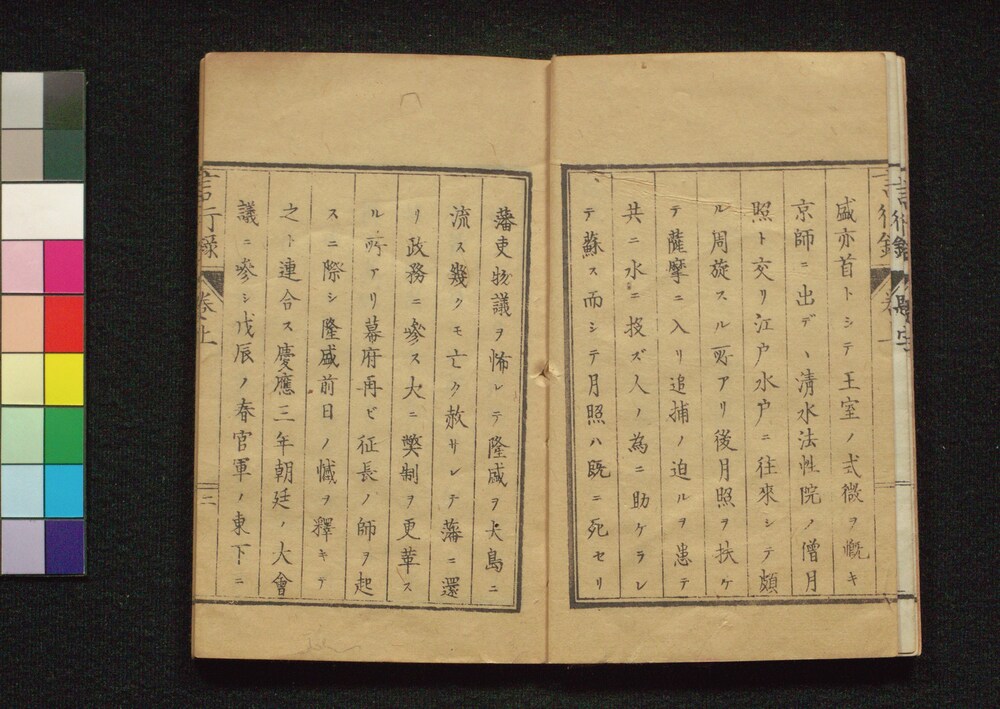 盛亦首トシテ王室ノ式微ヲ慨キ
京師ニ出デヽ清水法性院ノ僧月
照ト交リ江戸水戸ニ往來シテ頗
ル周旋スル所アリ後月照ヲ扶ケ
テ薩摩ニ入リ追捕ノ迫ルヲ患テ
共ニ水ニ投ズ人ノ為ニ助ケラレ
テ蘇ス而シテ月照ハ既ニ死セリ
藩吏物議ヲ怖レテ隆盛ヲ大島ニ
流ス幾クモ亡ク赦サレテ藩ニ還
リ政務ニ參ス大ニ獘制ヲ更革ス
ル所アリ幕府再ビ征長ノ師ヲ起
スニ際シ隆盛前日ノ憾ヲ釋キテ
之ト連合ス慶應三年朝廷ノ大會
議ニ參シ戊辰ノ春官軍ノ東下ニ
言行録 卷上 二